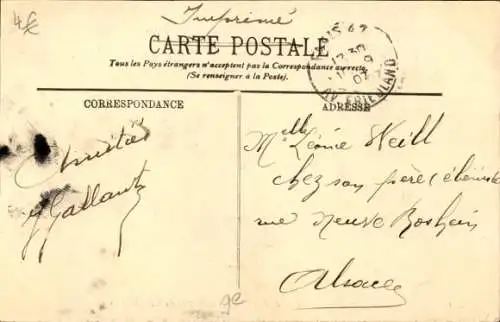 4€
Imprimé
CARTE POSTALE
Tous les Pays étrangers n'acceptent pas la Correspondance au recto.
(Se renseigner à la Poste).
PARIS 67
17 30
AV. FRIEDLAND
CORRESPONDANCE
ADRESSE
Amitiés
Gallautz
Melle Léonie Weill
chez son frère (ébéniste
rue Neuve
Alsace